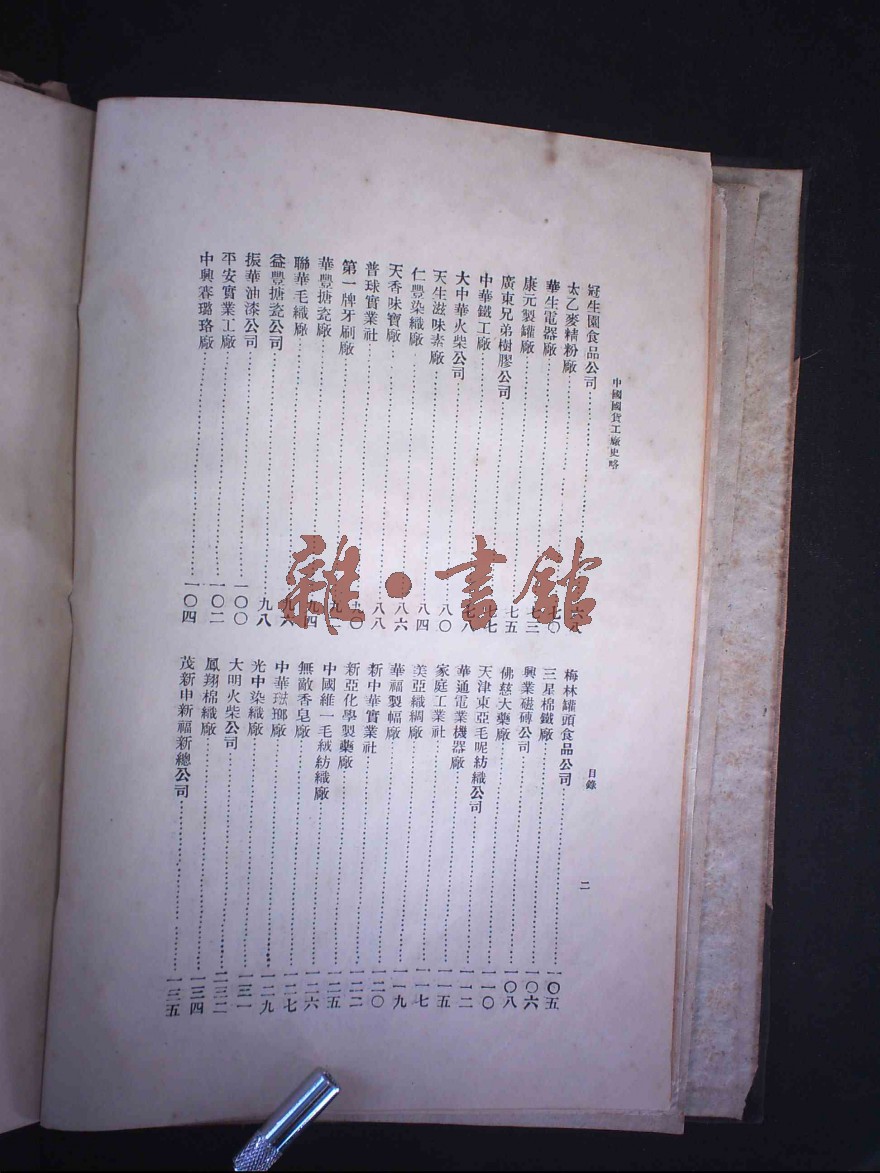 中國國貨工廠史略
目錄
二
冠生園食品公司 六八
太乙麥精粉廠
華生電器廠 七〇
康元製罐廠 七三
廣東兄弟樹膠公司 七五
中華鐵工廠 七七
大中華火柴公司 七八
天生滋味素廠 八〇
仁豐染織廠 八四
天香味寶廠 八六
普球實業社 八八
第一牌牙刷廠 九〇
華豐搪瓷廠
聯華毛織廠 九四
益豐搪瓷公司 九六
振華油漆公司 九八
平安實業工廠 一〇〇
中興賽璐珞廠 一〇二
一〇四
梅林罐頭食品公司 一〇五
三星棉鐵廠 一〇六
興業磁磚公司 一〇八
佛慈大藥廠 一一〇
天津東亞毛呢紡織公司 一一二
華通電業機器廠 一一五
家庭工業社 一一七
美亞織綢廠 一一九
華福製帽廠 一二〇
新中華實業社 一二二
新亞化學製藥廠 一二五
中國維一毛絨紡織廠 一二六
無敵香皂廠 一二七
中華琺瑯廠 一二九
光中染織廠 一三一
大明火柴公司 一三二
鳳翔棉織廠 一三四
茂新申新福新總公司 一三五
雜·書館